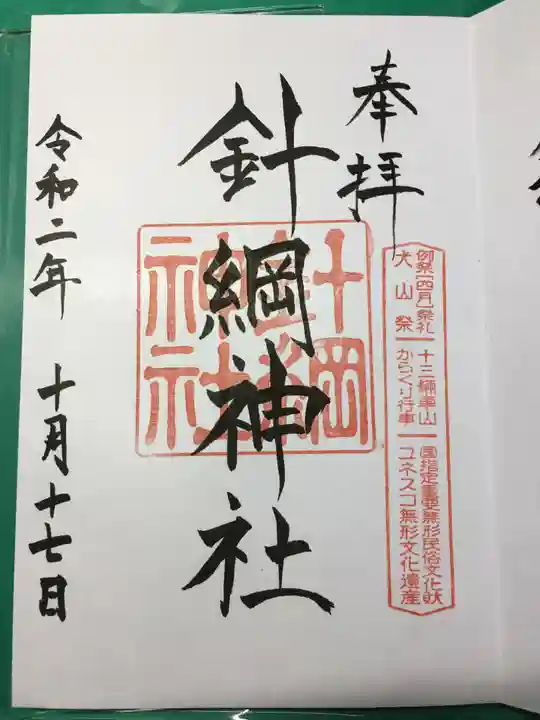 奉拝
例祭[四月]祭礼 十三輛車山 国指定重要無形民俗文化財
犬山祭 からくり行事 ユネスコ無形文化遺産
針綱神社
針綱
神社
令和二年 十月十七日